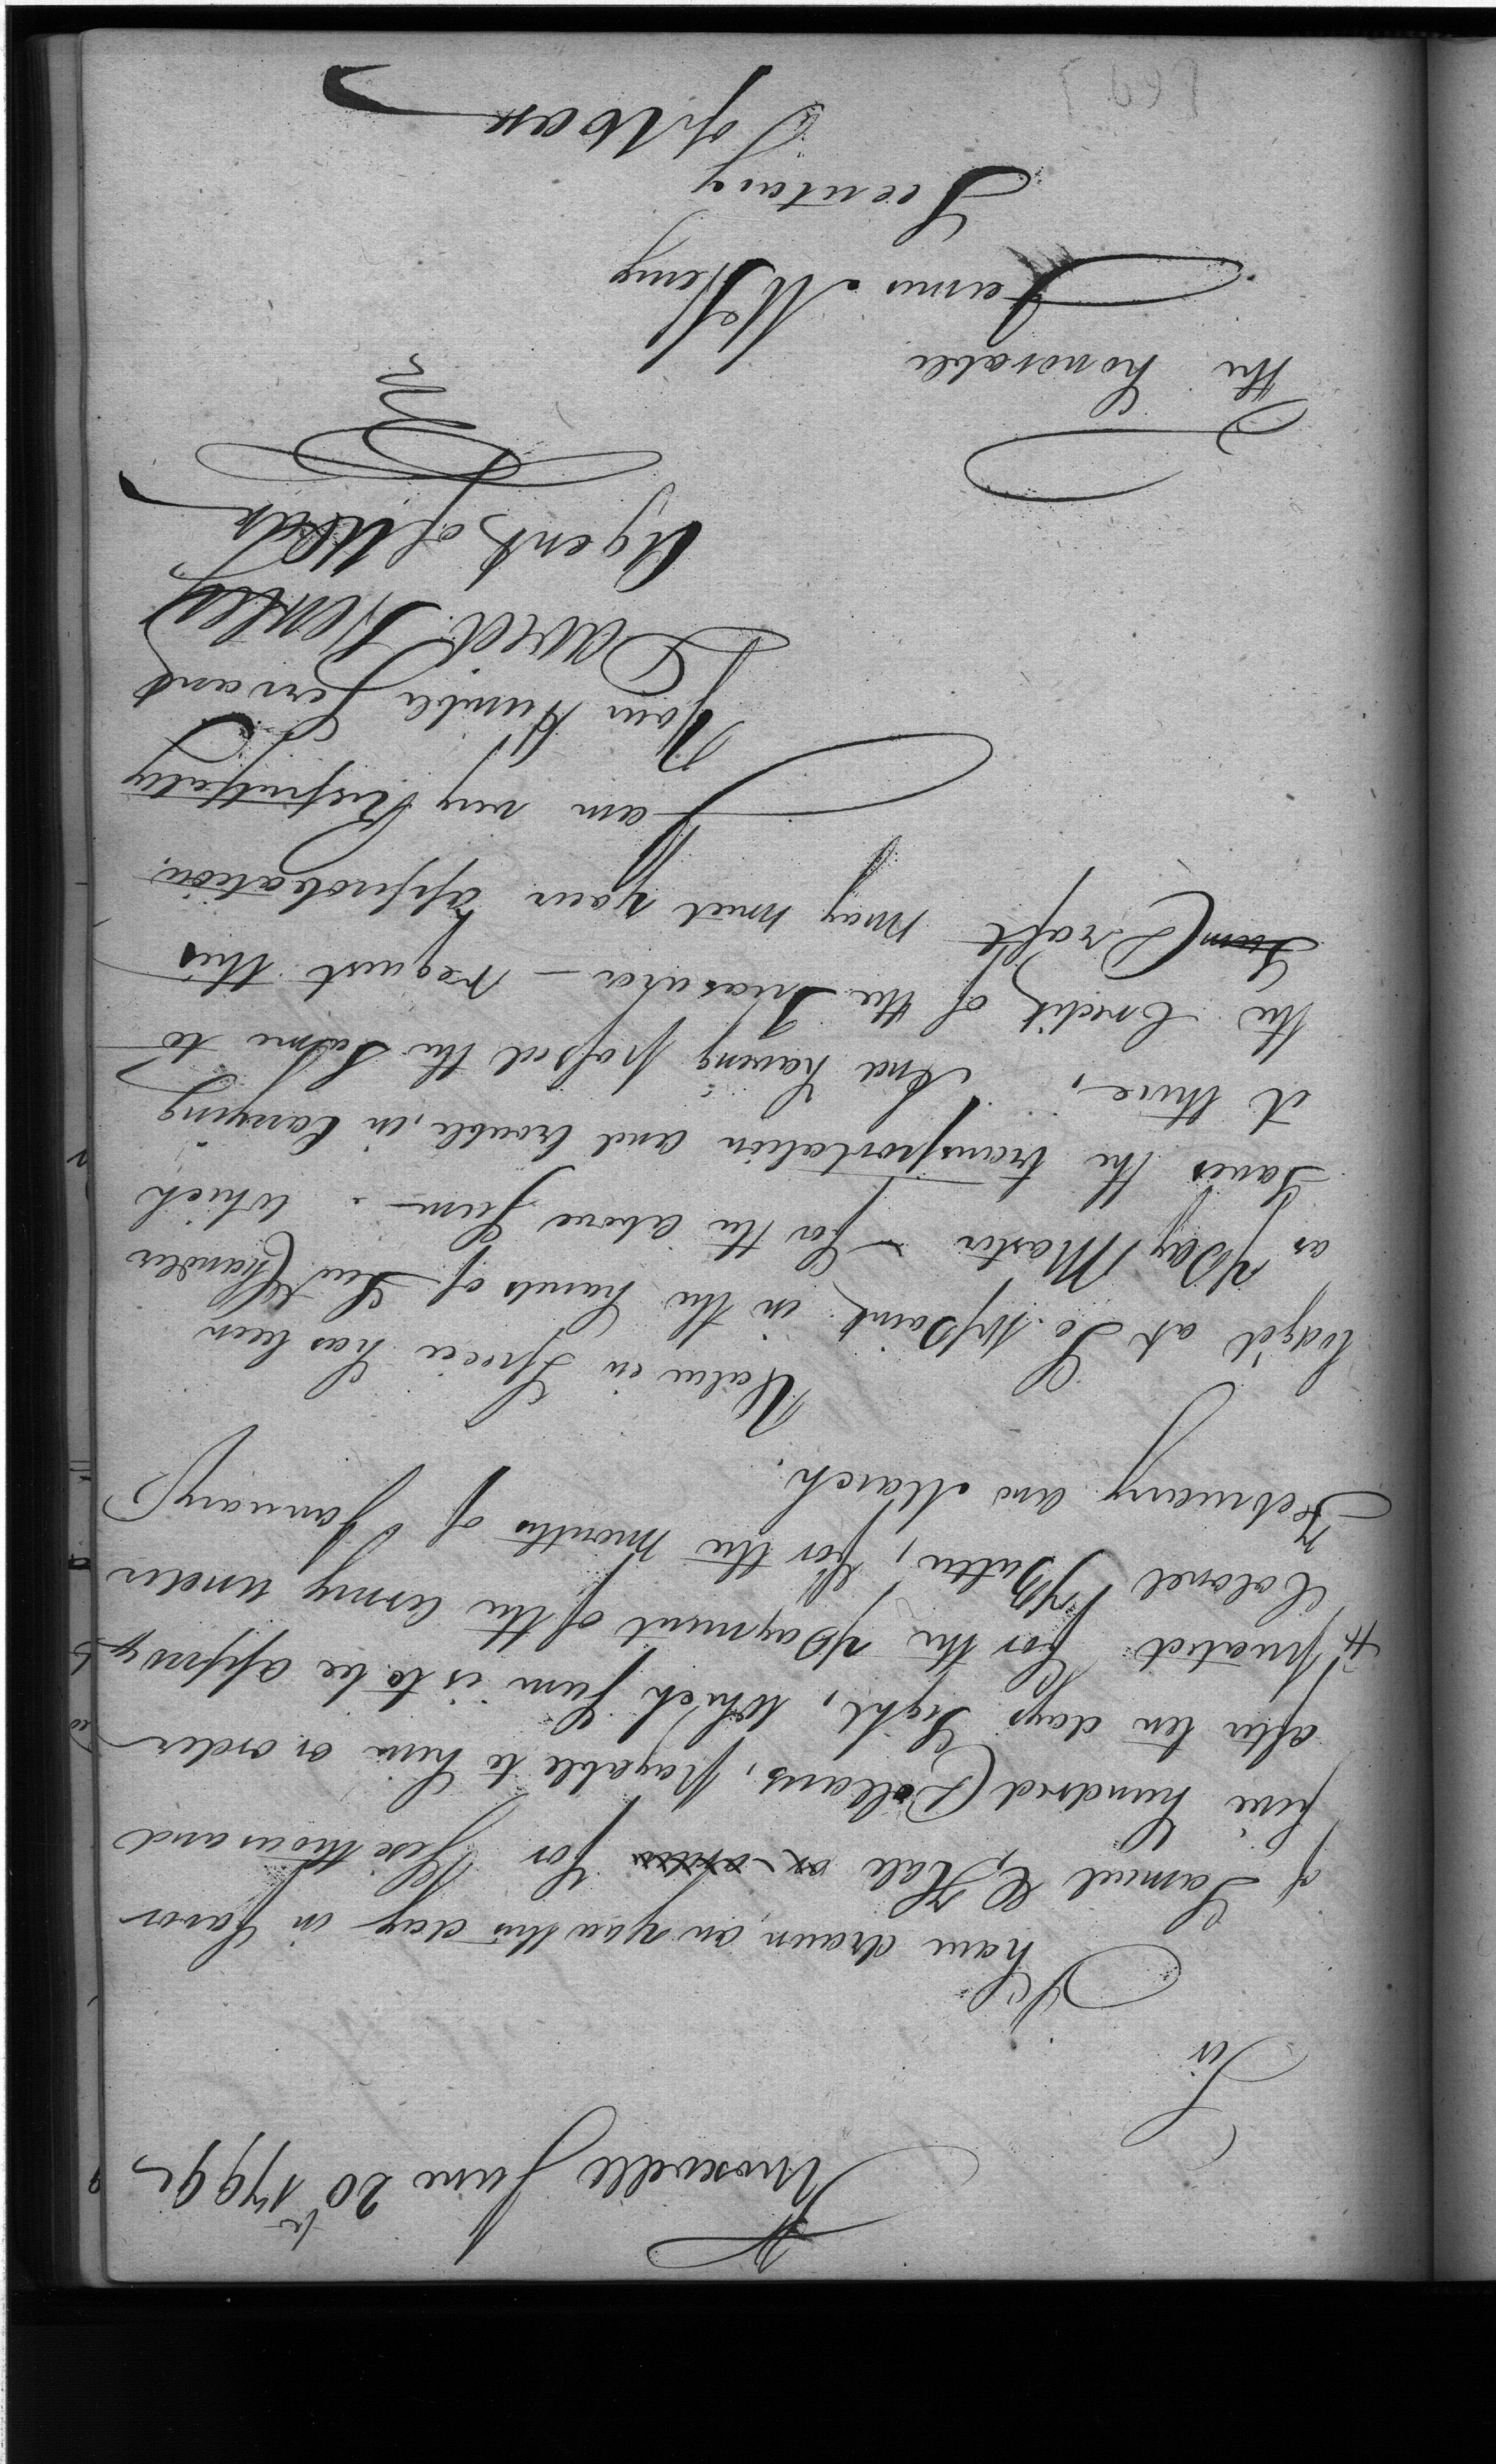 Knoxville June 20th 1799
Sir
I have drawn on you this day in favor
of Samuel C. Hall or order for Six thousand
five hundred Dollars, payable to him or order
after ten days Sight, which Sum is to be approp
priated for the Payment of the army under
Colonel Butler, for the months of January
February and March.
Value in Specie has been
lodg'd at So. W Point in the hands of Lieut Chandler
as Pay Master for the above Sum - which
Saves the transportation and trouble, in Carrying
it there, And having passed the Same to
the Credit of the Treasurer - request this
Draft may meet your approbation.
I am very Respectfully
Your Humble Servant
David Henley
Agent of War
The honorable
James McHenry
Secretary
of War